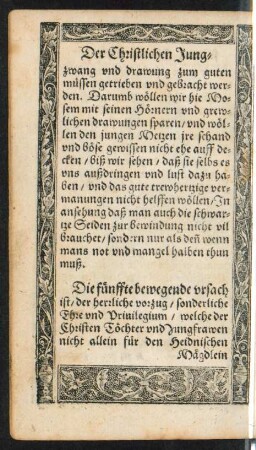 Der Christlichen Jung-
zwang vnd drawung zum guten
müssen getrieben vnd gebracht wer-
den. Darumb wöllen wir hie Mo-
sem mit seinen Hörnern vnd grew-
lichen drawungen sparen / vnd wöl-
len den jungen Metzen jre schand
vnd böse gewissen nicht ehe auff de-
cken / biß wir sehen / daß sie selbs es
vns außdringen vnd lust dazu ha-
ben / vnd das gute trewhertzige ver-
manungen nicht helffen wöllen / In
ansehung daß man auch die schwar-
tze Seiden zur bewindung nicht vil
brauchet / sondern nur als deñ wenn
mans not vnd mangel halben thun
muß.
Die fünffte bewegende vrsach
ist / der herzliche vorzug / sonderliche
Ehre vnd Priuilegium / welche der
Christen Töchter vnd Jungfrawen
nicht allein für den Heidnischen
Mägdlein